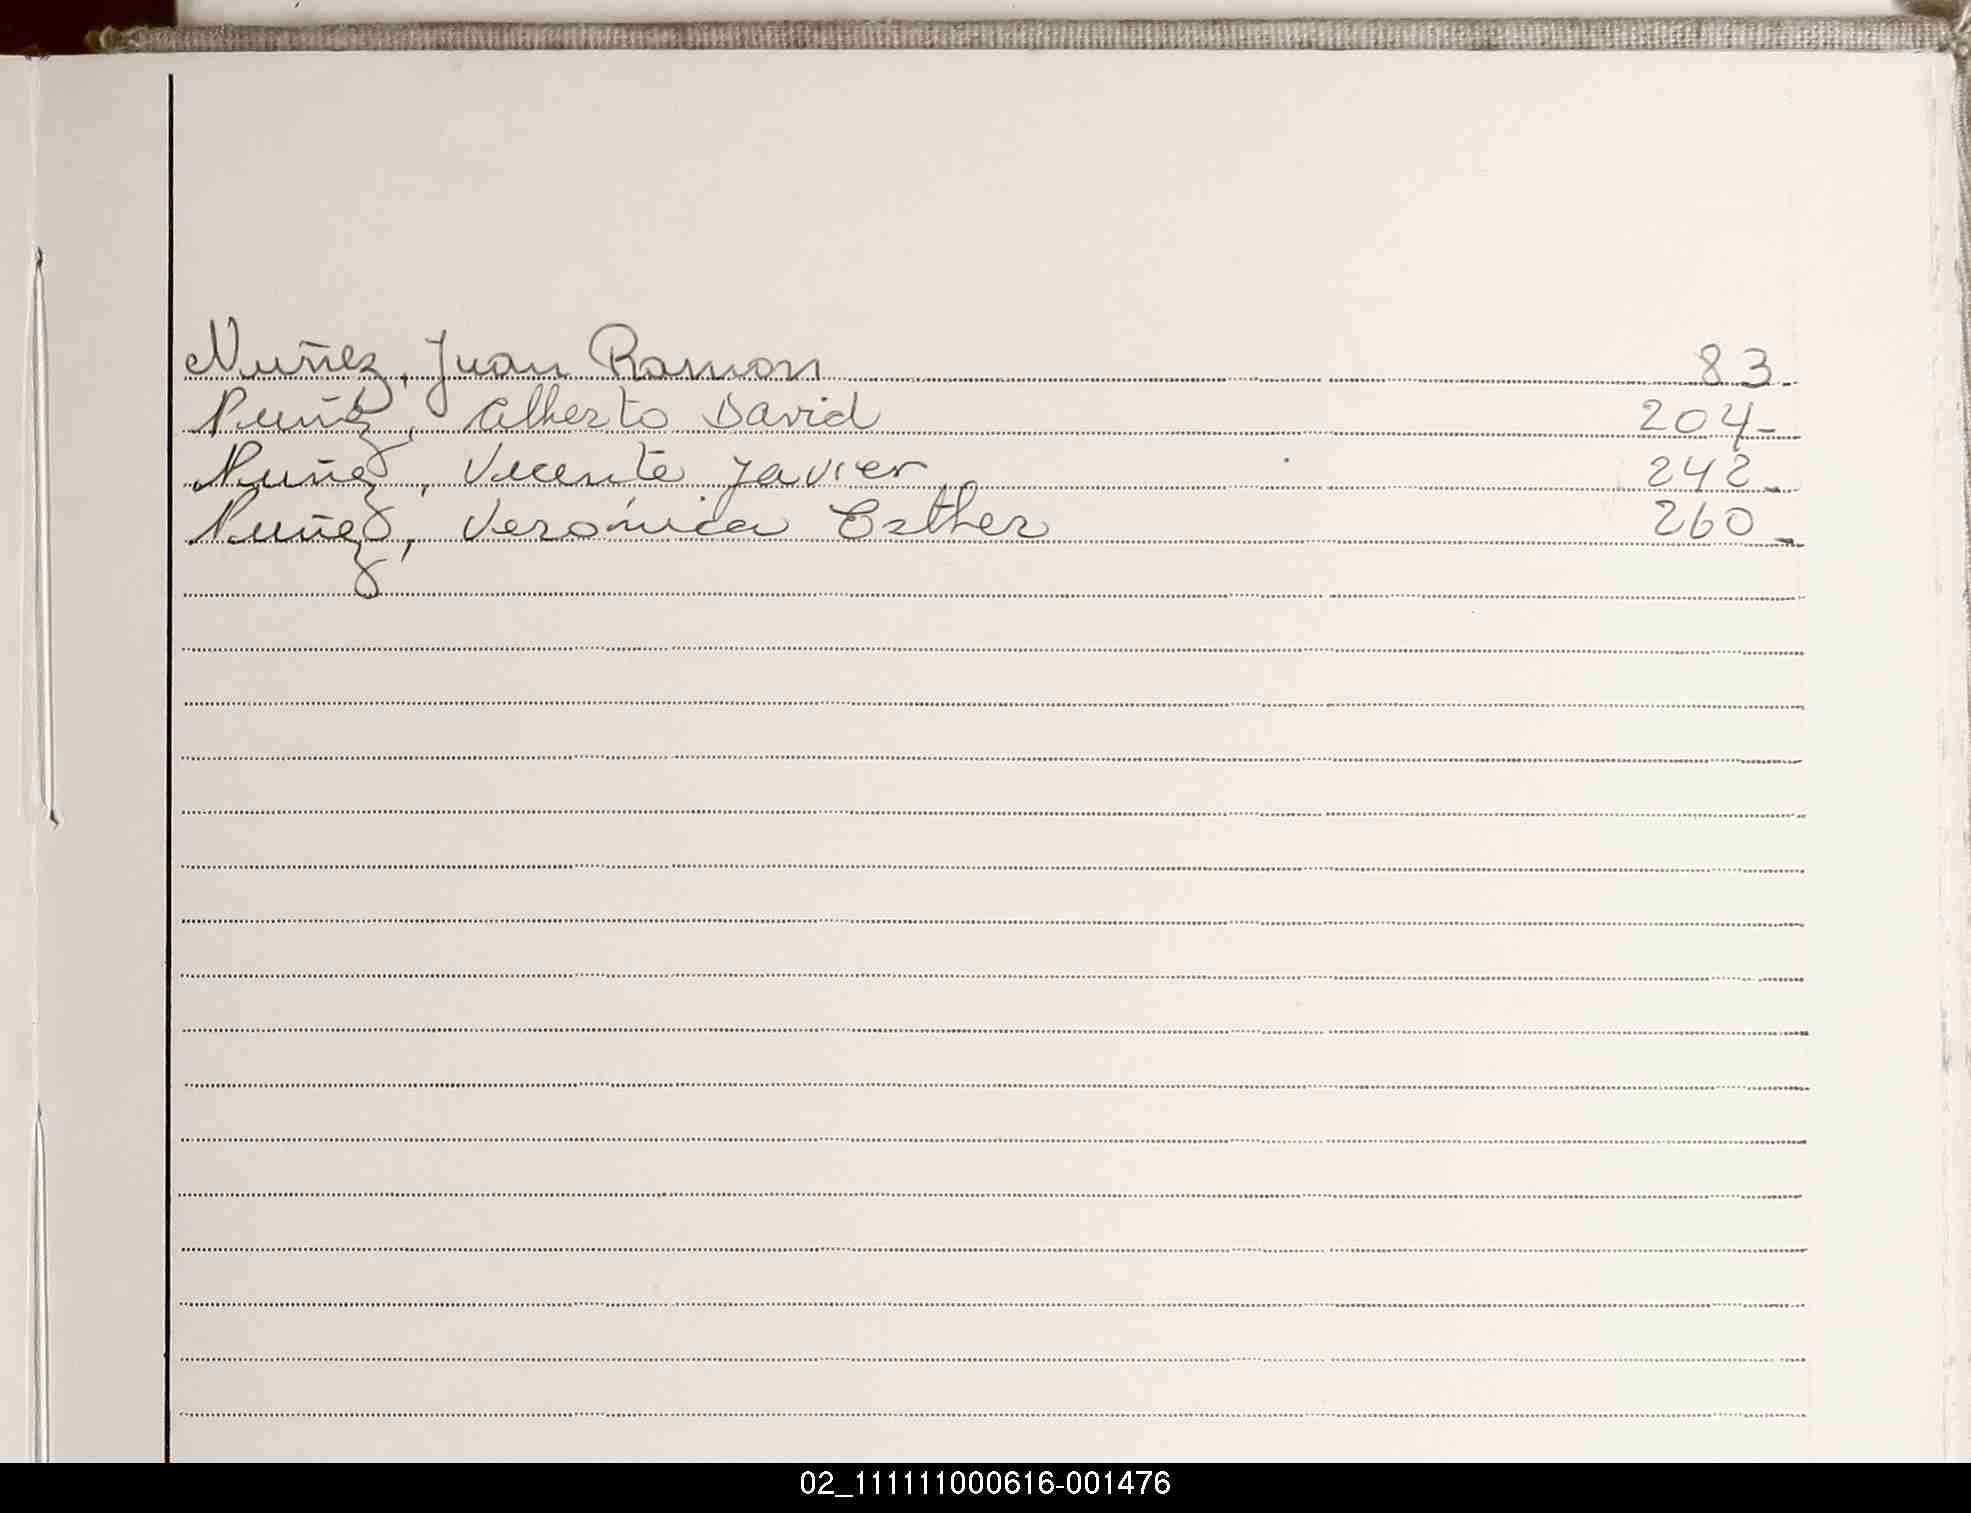 Nuñez, Juan Ramon 83.
Nuñez, Alberto David 204-
Nuñez, Vicente Javier 242-
Nuñez, Verónica Esther 260-
02_111111000616-001476